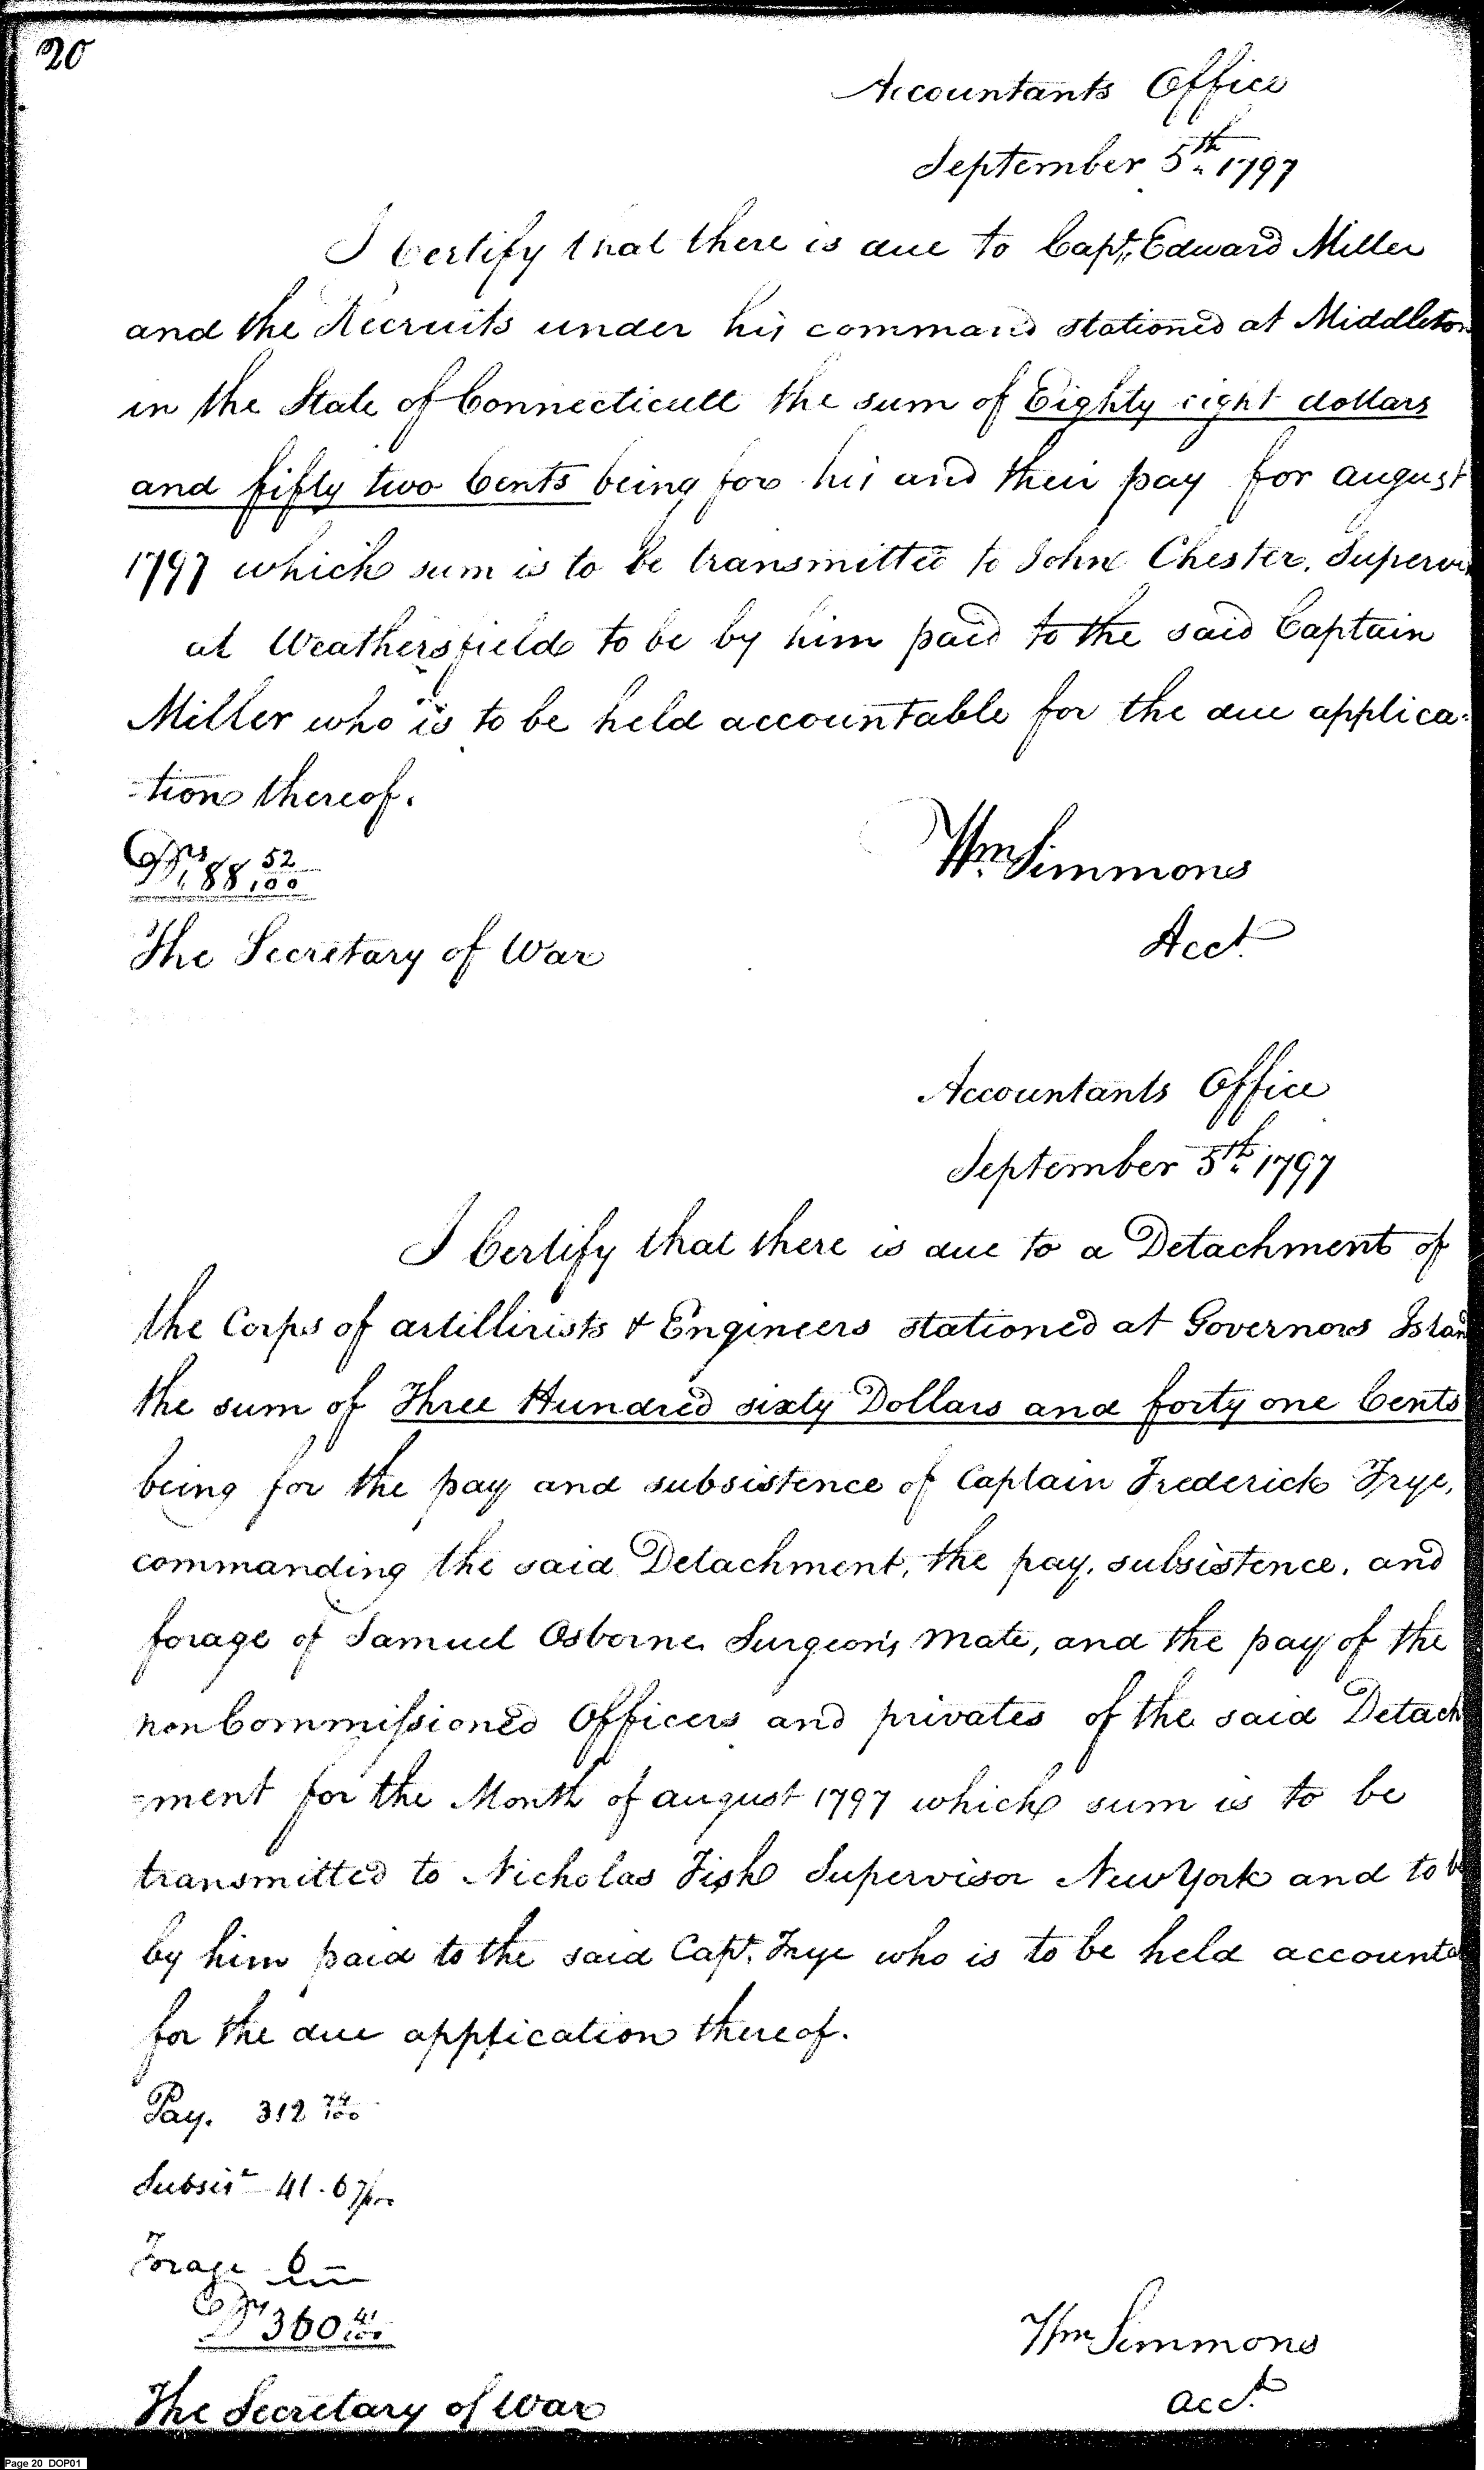 20
Accountants Office
September 5th 1797
I Certify that there is due to Capt. Edward Miller
and the Recruits under his command stationed at Middleton
in the State of Connecticutt the sum of Eighty eight dollars
and fifty two Cents being for his and their pay for august
1797 which sum is to be transmitted to John Chester, Supervi
at Weathersfield to be by him paid to the said Captain
Miller who is to be held accountable for the due applica-
-tion thereof.
Drs 88 52/100
Wm Simmons
The Secretary of War
Acct.
Accountants Office
September 5th 1797
I Certify that there is due to a Detachment of
the Corps of artillirists & Engineers stationed at Governors Islan
the sum of Three Hundred sixty Dollars and forty one Cents
being for the pay and subsistence of Captain Frederick Frye,
commanding the said Detachment, the pay, subsistence, and
forage of Samuel Osborne Surgeon's mate, and the pay of the
non Commissioned Officers and privates of the said Detach
-ment for the Month of august 1797 which sum is to be
transmitted to Nicholas Fish Supervisor New York and to be
by him paid to the said Capt. Frye who is to be held accounta
for the due application thereof.
Pay. 312 74/100
Subsis. 41.67/100
Forage 6
Drs 360 41/100
Wm Simmons
acct.
The Secretary of War
Page 20 DOP01